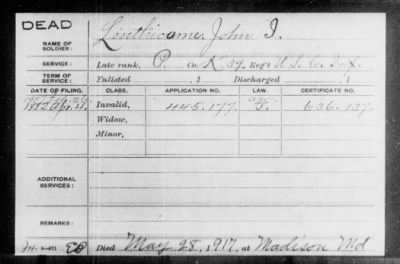 DEAD
NAME OF SOLDIER: Linthicome, John I.
SERVICE: Late rank, P. Co. K 39, Reg't U.S.C. Inf.
TERM OF SERVICE: Enlisted , 1 Discharged , 1
DATE OF FILING. CLASS. APPLICATION NO. LAW. CERTIFICATE NO.
1882 Apr. 21. Invalid, 445.177. 636.137.
Widow,
Minor,
ADDITIONAL SERVICES:
REMARKS:
Died May 28, 1917, at Madison Md